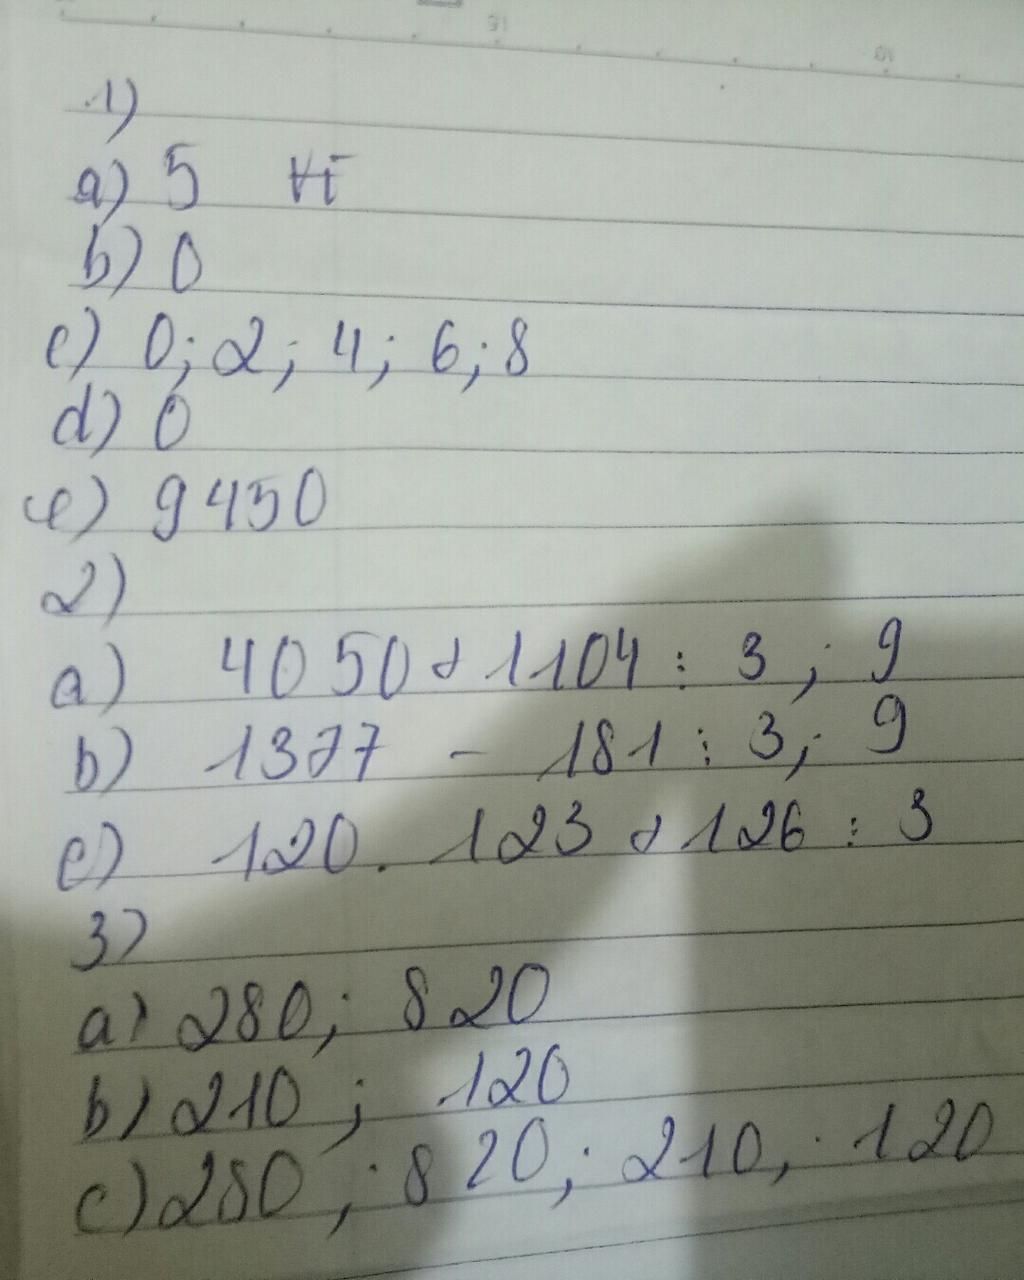 1)
a) 5
b) 0
c) 0; 2; 4; 6; 8
d) 0
e) 9450
2)
a) 4050 + 1104 : 3; 9
b) 1377 - 181 : 3; 9
c) 120. 123 + 126 : 3
3)
a) 280; 820
b) 210; 120
c) 280; 820; 210; 120